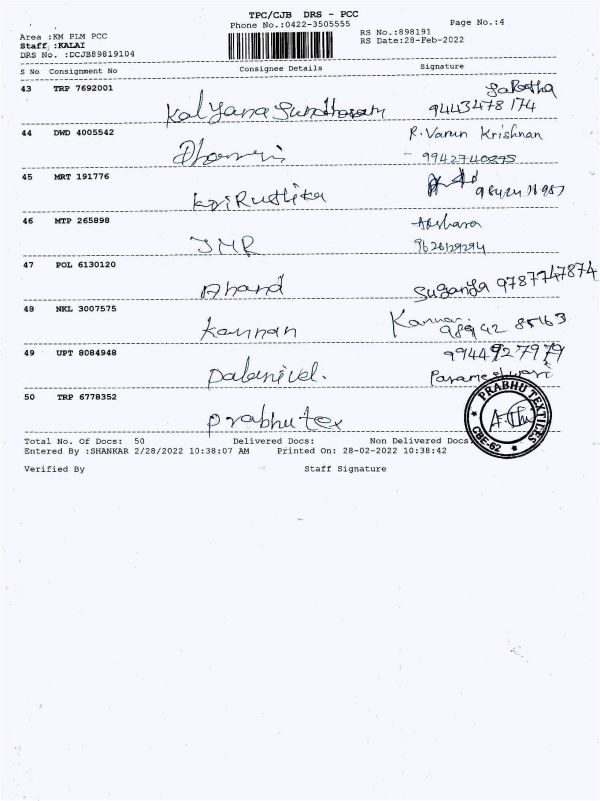 TPC/CJB DRS - PCC
Phone No.:0422-3505555
Page No.:4
Area :KM PLM PCC
RS No.:898191
Staff :KALAI
RS Date:28-Feb-2022
DRS No. :DCJB89819104
S No Consignment No Consignee Details Signature
43 TRP 7692001
Kalyana Sundharam
9443478174
44 DWD 4005542
R. Varun Krishnan
9942740295
45 MRT 191776
46 MTP 265898
JMR
Akshara
47 POL 6130120
Anand
Suganya 9787747874
48 NKL 3007575
Kannan
Kannan
98942 85163
49 UPT 8084948
9944927979
Palanivel.
Parameshwari
50 TRP 6778352
Prabhu tex
PRABHU TEXTILES
CBE-62
Total No. Of Docs: 50 Delivered Docs: Non Delivered Docs
Entered By :SHANKAR 2/28/2022 10:38:07 AM Printed On: 28-02-2022 10:38:42
Verified By Staff Signature